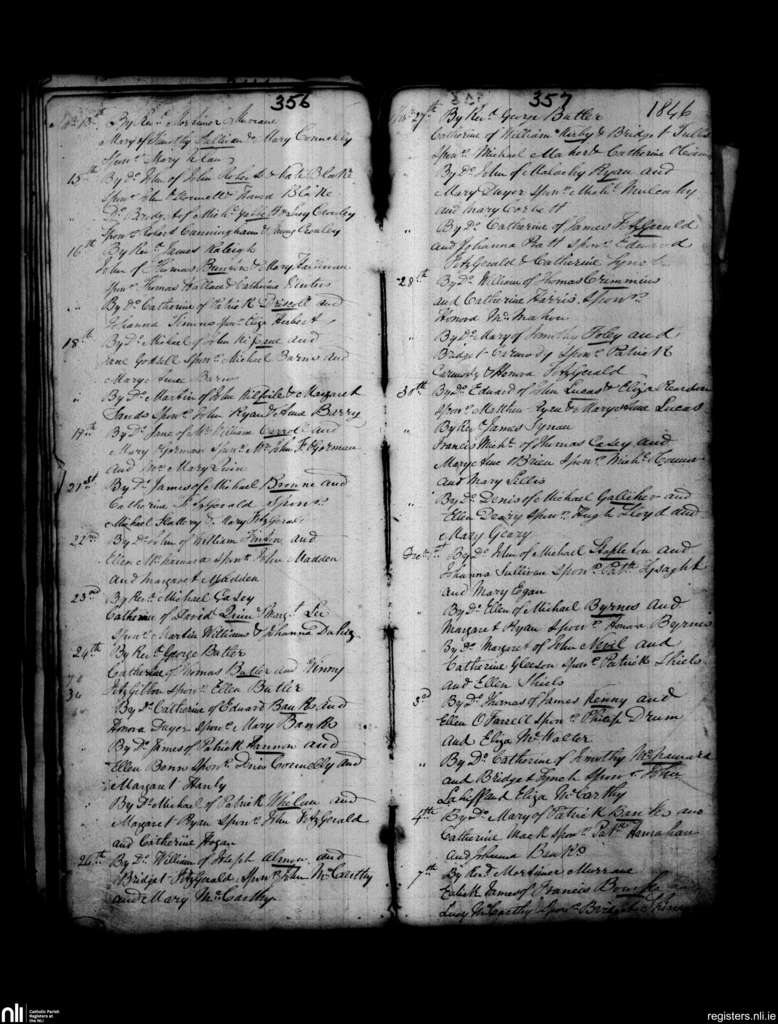 356
13th By Revd Mortimer Murrane
Mary of Timothy Sullivan & Mary Connolly
Sponr Mary
15th By Do John of John & Kate Blake
Sponr John Bennett & Hanora Blake
" Do Bridget of Michl & Lucy Crowley
Sponr Robert Cunningham & Crowley
16th By Revd James Raleigh
John of Thomas & Mary
Sponr Thomas Wallace & Catherine
" By Do Catherine of Patrick Driscoll and
Johanna Simms Sponr Eliza Herbert
18th By Do Michael of John and
Jane Godsell Sponr Michael Barns and
Mary Anne Barns
" By Do Martin of John & Margaret
Sands Sponr John Ryan & Anne Barry
19th By Do Jane of Mr William Carroll and
Mary Gorman Sponr Mr John F Gorman
and Mrs Mary
21st By Do James of Michael Browne and
Catherine FitzGerald Sponrs
Michael Slattery & Mary FitzGerald
22nd By Do John of William Finton and
Ellen McNamara Sponr John Madden
and Margaret Madden
23rd By Revd Michael Casey
Catherine of David Quinn & Margt Lee
Sponr Martin Williams & Johanna Daly
24th By Revd George Butler
Catherine of Thomas Butler and Winny
FitzGibbon Sponr Ellen Butler
By Do Catherine of Edward Banks and
Honora Dwyer Sponr Mary Banks
" By Do James of Patrick Hannon and
Ellen Bonn Sponr Denis Connelly and
Margaret Hanly
" By Do Michael of Patrick Whelan and
Margaret Ryan Sponr John FitzGerald
and Catherine Hogan
26th By Do William of Joseph Almon and
Bridget FitzGerald Sponr John McCarthy
and Mary McCarthy
357
1846
27th By Revd George Butler
Catherine of William Kirby & Bridget
Sponr Michael Maher & Catherine
By Do John of Malachy Ryan and
Mary Dwyer Sponr Michl Mulcahy
and Mary Corbett
" By Do Catherine of James FitzGerald
and Johanna Pratt Sponr Edward
FitzGerald & Catherine Lynch
28th By Do William of Thomas Crimmins
and Catherine Harris Sponr
Honora McMahon
" By Do Mary of Timothy Foley and
Bridget Carmody Sponr Patrick
Carmody & Honora FitzGerald
30th By Do Edward of John Lucas & Eliza Reardan
Sponr Matthew & Mary Anne Lucas
" By Revd James Synan
Francis Michl of Thomas Casey and
Mary Anne O'Brien Sponr Michl
and Mary Lillis
" By Do Denis of Michael Gallehor and
Ellen Deasy Sponr Hugh Lloyd and
Mary Geary
1st By Do John of Michael Stapleton and
Johanna Sullivan Sponr Patk Lysaght
and Mary Egan
By Do Ellen of Michael Byrnes and
Margaret Ryan Sponr Honora Byrnes
By Do Margaret of John Nevil and
Catherine Gleeson Sponr Patrick Shiels
and Ellen Shiels
3d By Do Thomas of James Kenny and
Ellen O Farrell Sponr Philip Drum
and Eliza McWalter
" By Do Catherine of Timothy McNamara
and Bridget Lynch Sponr John
Lahiff and Eliza McCarthy
4th By Do Mary of Patrick Banks and
Catherine Mack Sponr Patk Hanrahan
and Johanna Banks
7th By Revd Mortimer Murrane
Patrick James of Francis Bourke and
Lucy McCarthy Sponr Bridget
nli
Catholic Parish
Registers at
the NLI
registers.nli.ie